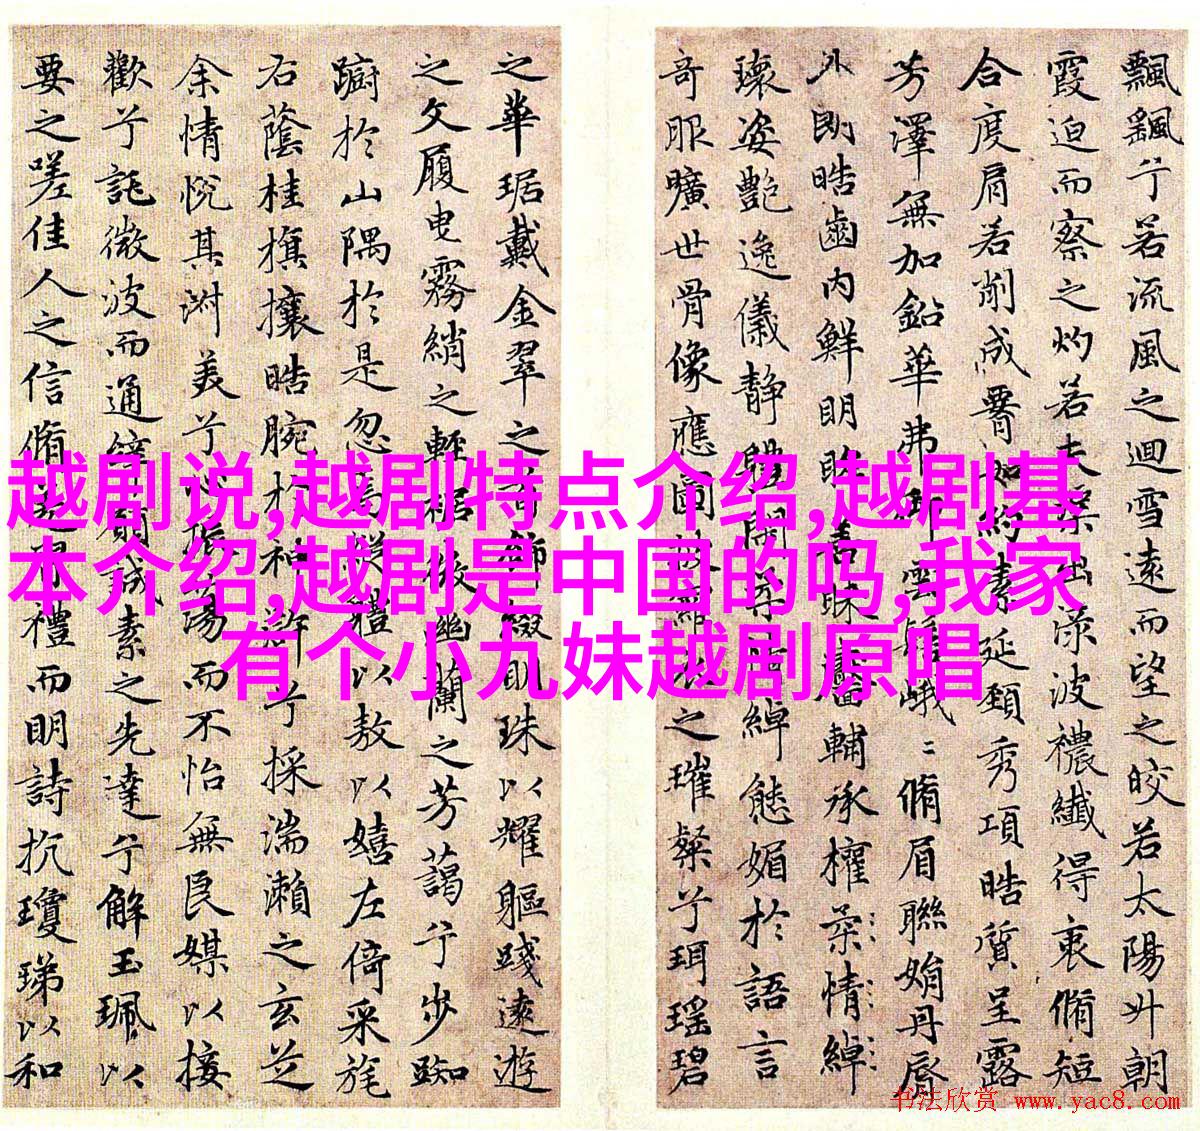 越剧说,越剧特点介绍,越剧基
本介绍,越剧是中国的吗,我家
有个小九妹越剧原唱
飄飖兮若流風之迴雪遠而望之皎若太陽升朝
霞迫而察之灼若夫蕖出渌波襛纖得衷脩短
合度肩若削成腰如約素延頸秀項皓質呈露
芳澤無加鉛華弗御雲髻峨〻脩眉聯娟丹唇
外朗皓齒内鮮明眸善睞靨輔承權柔情綽
瓌姿艷逸儀靜體閑柔情綽態媚於語言
奇服曠世骨像應圖披羅衣之璀粲兮珥瑤碧
之華琚戴金翠之首飾綴明珠以耀軀踐遠遊
之文履曳霧綃之輕裾微幽蘭之芳藹兮步踟
躕於山隅於是忽焉縱體以敖以嬉左倚采旄
右蔭桂旗攘皓腕於神滸兮採湍瀨之玄芝
余情悅其淑美兮心振蕩而不怡無良媒以接
歡兮託微波而通辭願誠素之先達兮解玉珮以
要之嗟佳人之信脩羌習禮而明詩抗瓊珶以和
书法欣赏 www.yac8.com